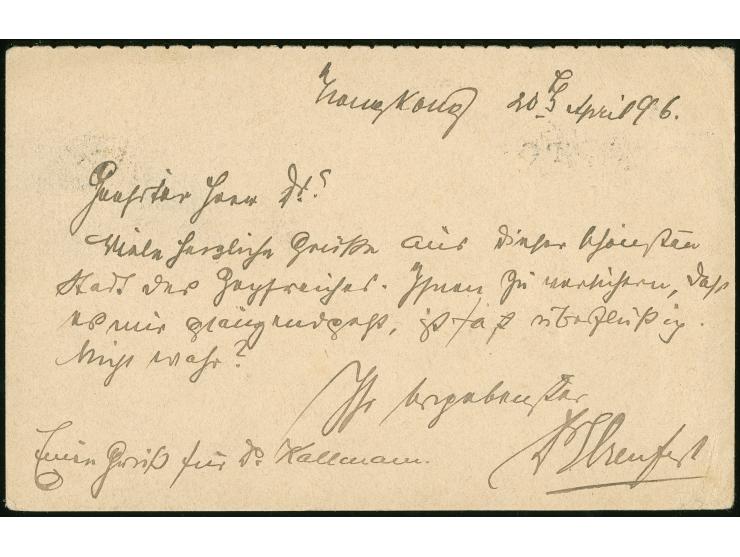 Hongkong 20/4 April 96.
Geehrter Herr Dr.!
Viele herzliche Grüße aus dieser schönsten
Stadt des Ostreiches. Ihnen zu versichern, daß
es mir glänzend geht, ist fast überflüßig.
Nicht wahr?
Ihr ergebenster
Einen Gruß für Dr. Kallmann.